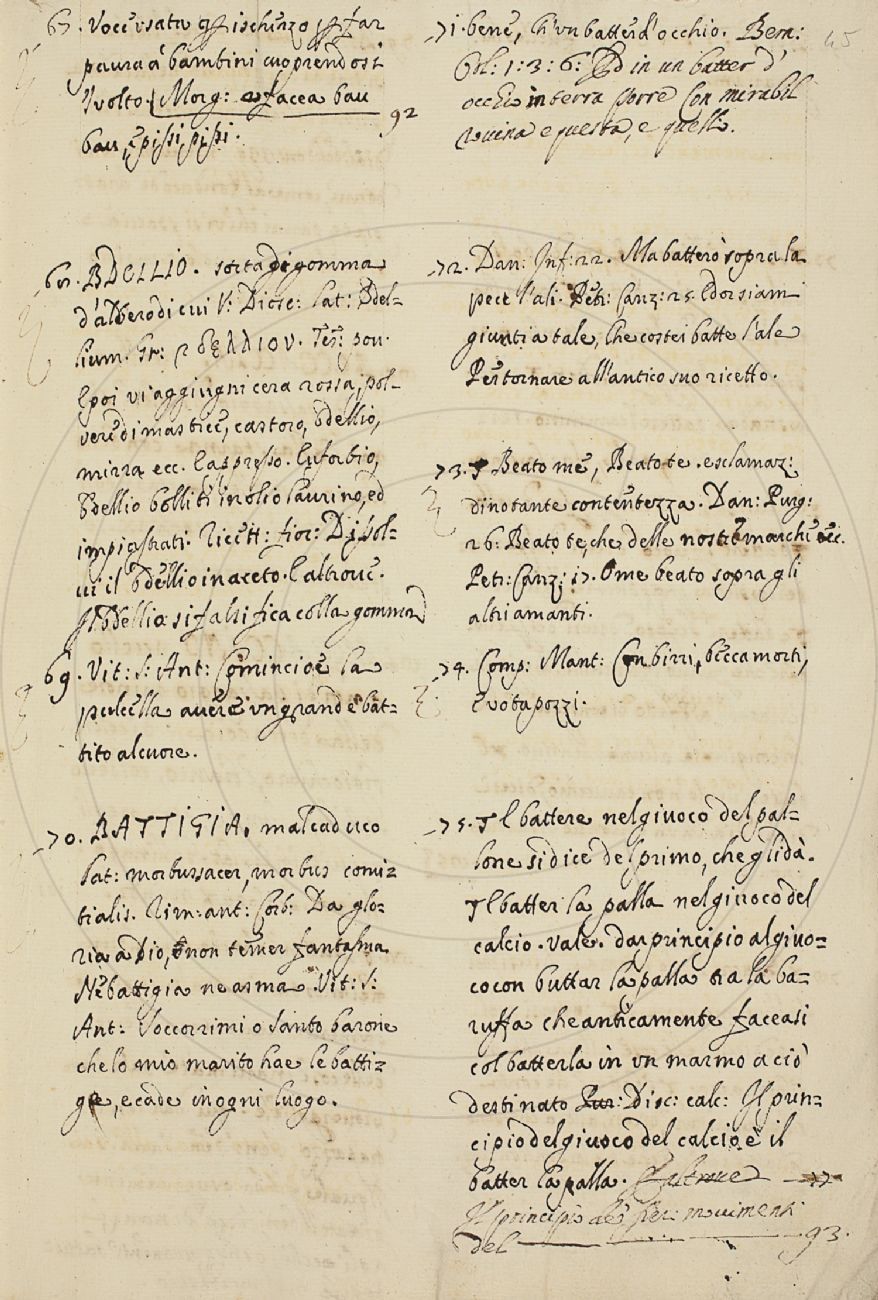 67. Voce usata p ischerzo p far
paura a' bambini cuoprendosi
'l volto. Morg: e facea bau
bau, e pissi pissi.
92
68. BDELLIO. sorta di gomma
d'albero di cui V: Diosc: Lat: Bdel-
lium. Gr: βδέλλιον. Tes: pov:
E poi vi aggiugni cera rossa, pol-
vere di mastice, castoro, bdellio,
mirra ecc. E appresso. Euforbio,
Bdellio bolliti in olio laurino, ed
impiastrati. Ricett: fior: Dissol-
vi il bdellio in aceto. E altrove.
Il Bdellio si falsifica colla gomma
69. Vit: S: Ant: Cominciò e la
pulcella avere un grande bat=
tito al cuore.
70. BATTIGIA. mal caduco
Lat: morbus sacer, morbus comi=
tialis. Rim: ant: Corb: Da glo=
ria a Dio, e non temer fantasma
Nè battigia ne asma. Vit: S:
Ant: Soccorrimi o Santo barone
che lo mio marito hae le batti=
gie, e cade in ogni luogo.
45
71. bene, ch'un batter d'occhio. Bern:
Orl: 1: 3: 6: Ed in un batter d'
occhio in terra porre Con mirabil
rovina e questa, e quelli.
72. Dan: Inf: 22. Ma batterò sopra la
pece l'ali. Petr: Canz: 25. Ed or siam
giunti a tale, Che costei batte l'ale
Per tornare all'antico suo ricetto.
73. Beato me, Beato te. esclamaz:
dinotante contentezza. Dan: Purg:
26: Beato te, che delle nostre marche ecc.
Petr: Canz: 17. O me beato sopra gli
altri amanti.
74. Comp: Mant: Con birri, beccamorti,
e votapozzi.
75. Il battere nel giuoco del pal-
lone si dice del primo, che gli dà.
Il batter la palla nel giuoco del
calcio. vale. dar principio al giuo=
co con buttar la palla tra la ba=
ruffa che anticamente faceasi
col batterla in un marmo a ciò
destinato Disc: calc: Il prin=
cipio del giuoco del calcio è il
batter la palla. E altrove
Il principio de' movimenti
del
93.